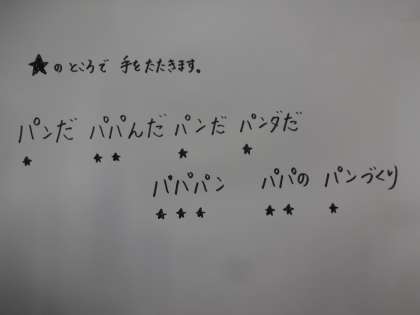 ★のところで 手をたたきます。
パンだ パパんだ パンだ パンダだ
★ ★★ ★ ★
パパパン パパの パンづくり
★★★ ★★ ★